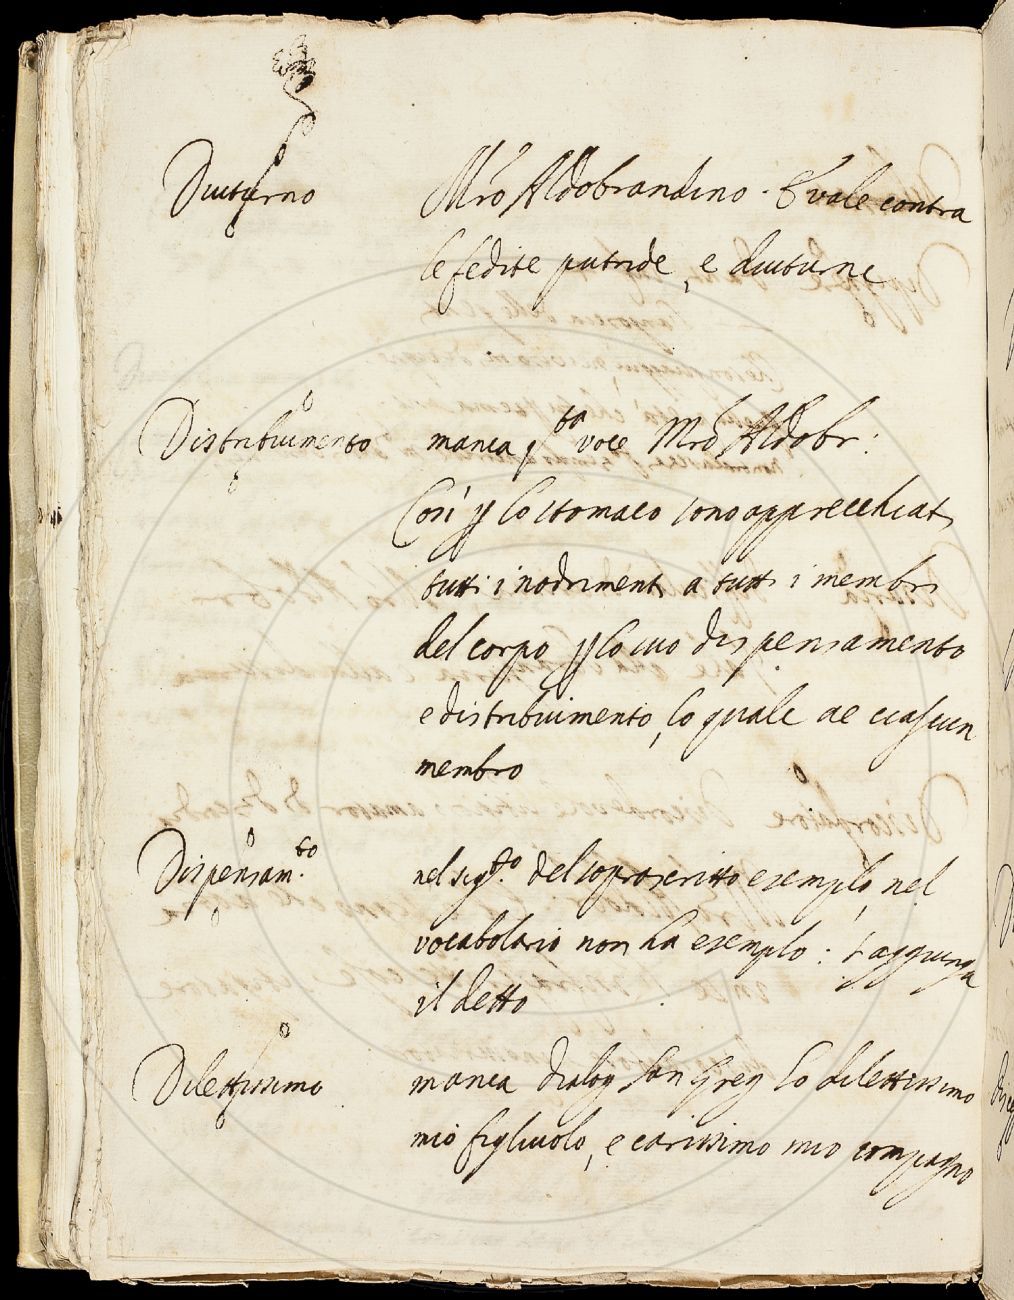 Diuturno Mro Aldobrandino. E vale contra
le fedite putride, e diuturne
Distribuimento manca qta voce Mro Aldobr:
Così p lo stomaco sono apparecchiati
tutti i nodrimenti a tutti i membri
del corpo p lo suo dispensamento
e distribuimento, lo quale ae ciascun
membro
Dispensam.to nel sigto. del soprascritto esemplo, nel
vocabolario non ha esemplo: s'aggiunga
il detto
Dilettissimo manca dialog San Greg lo dilettissimo
mio figliuolo, e carissimo mio compagno